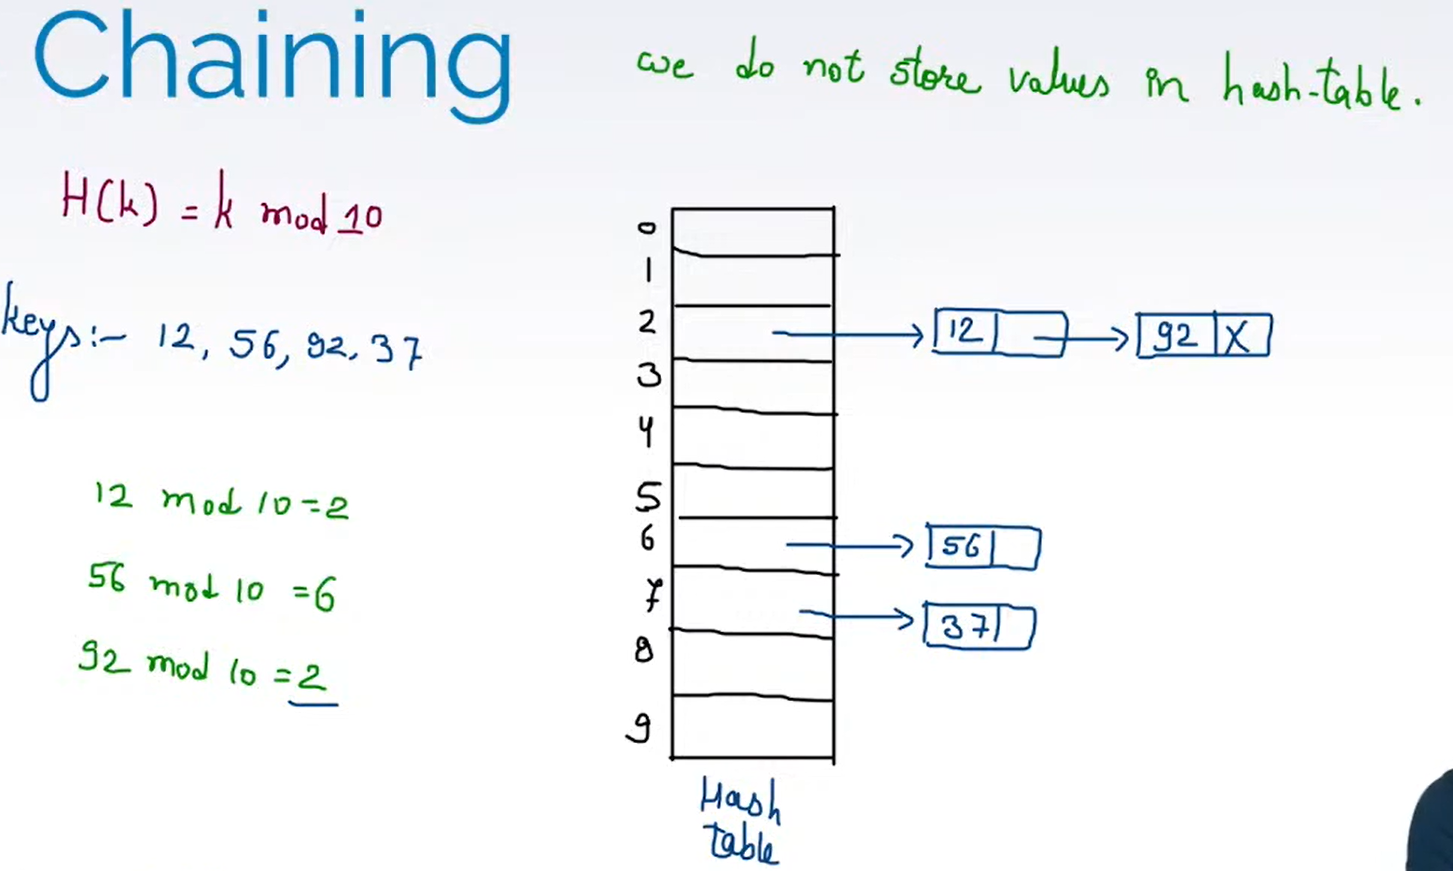 Chaining
we do not store values in hash-table.
H(k) = k mod 10
keys:- 12, 56, 92, 37
12 mod 10=2
56 mod 10 =6
92 mod 10 =2
0
1
2
3
4
5
6
7
8
9
12
92 X
56
37
Hash
table